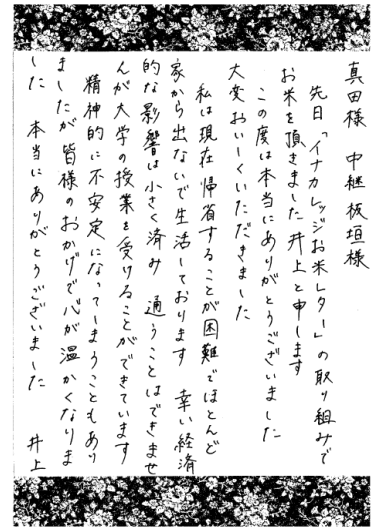 真田様　中継 板垣様
先日「イナカレッジお米レター」の取り組みで
お米を頂きました 井上と申します
この度は本当にありがとうございました
大変おいしくいただきました
私は現在 帰省することが困難でほとんど
家から出ないで生活しております　幸い経済
的な影響は小さく済み　通うことはできませ
んが大学の授業を受けることができています
精神的に不安定になってしまうこともあり
ましたが 皆様のおかげで心が温かくなりま
した　本当にありがとうございました　井上